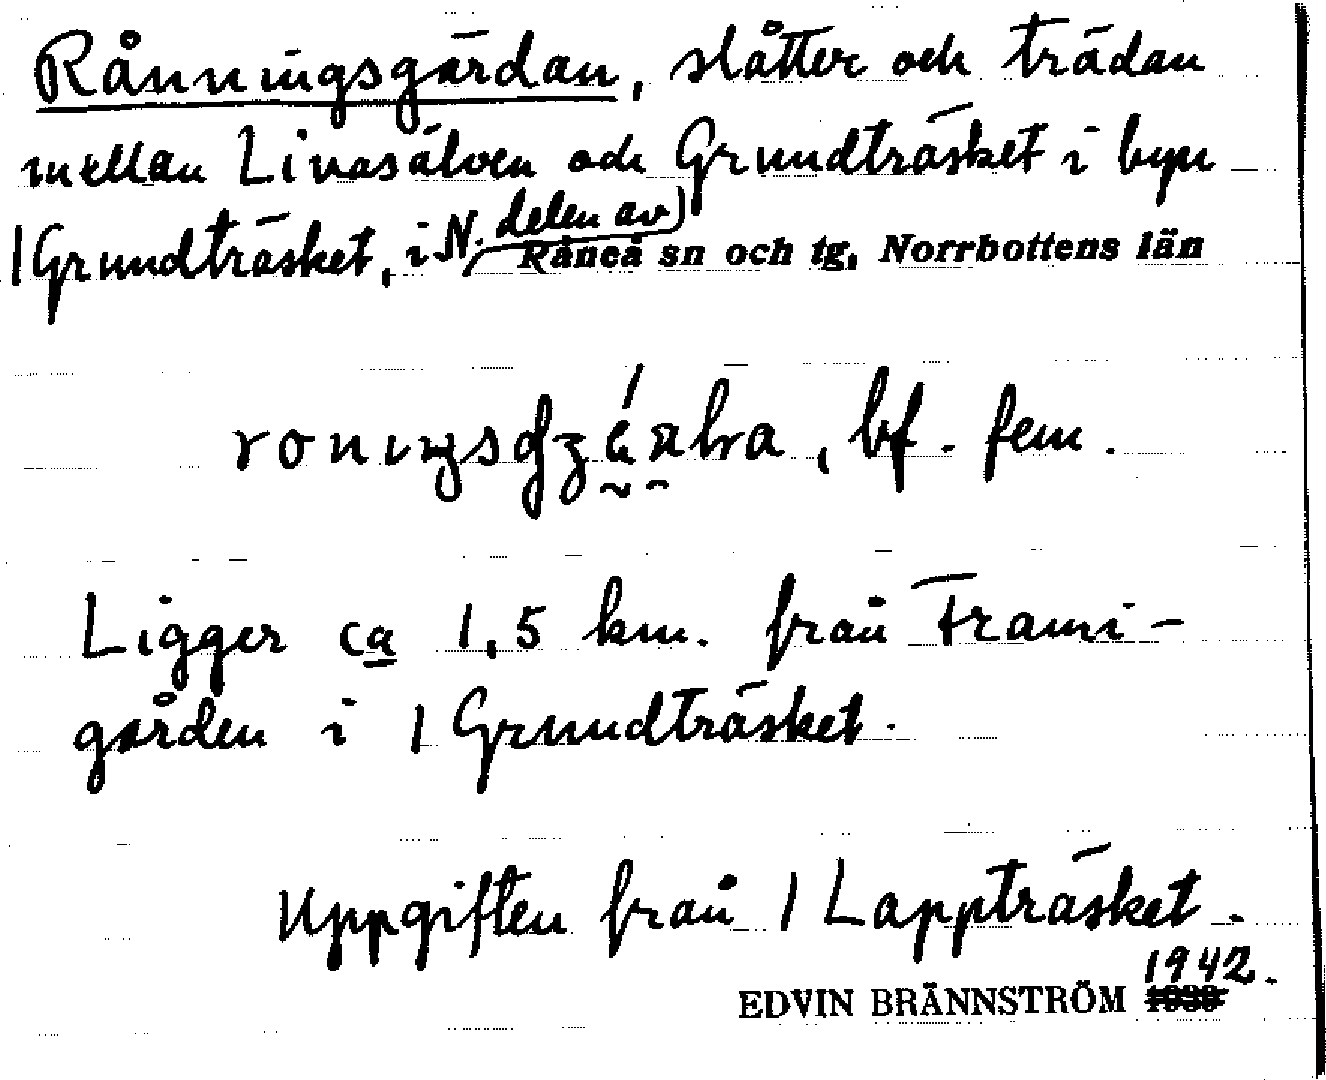 Rånningsgärdan, slåtter och trädan
mellan Livasälven och Grundträsket i byn
|Grundträsket, i N. delen av) Råneå sn och tg, Norrbottens län
bf. fem.
Ligger ca 1,5 km. från Frami-
gården i | Grundträsket.
Uppgiften från | Lappträsket.
EDVIN BRÄNNSTRÖM 1942.